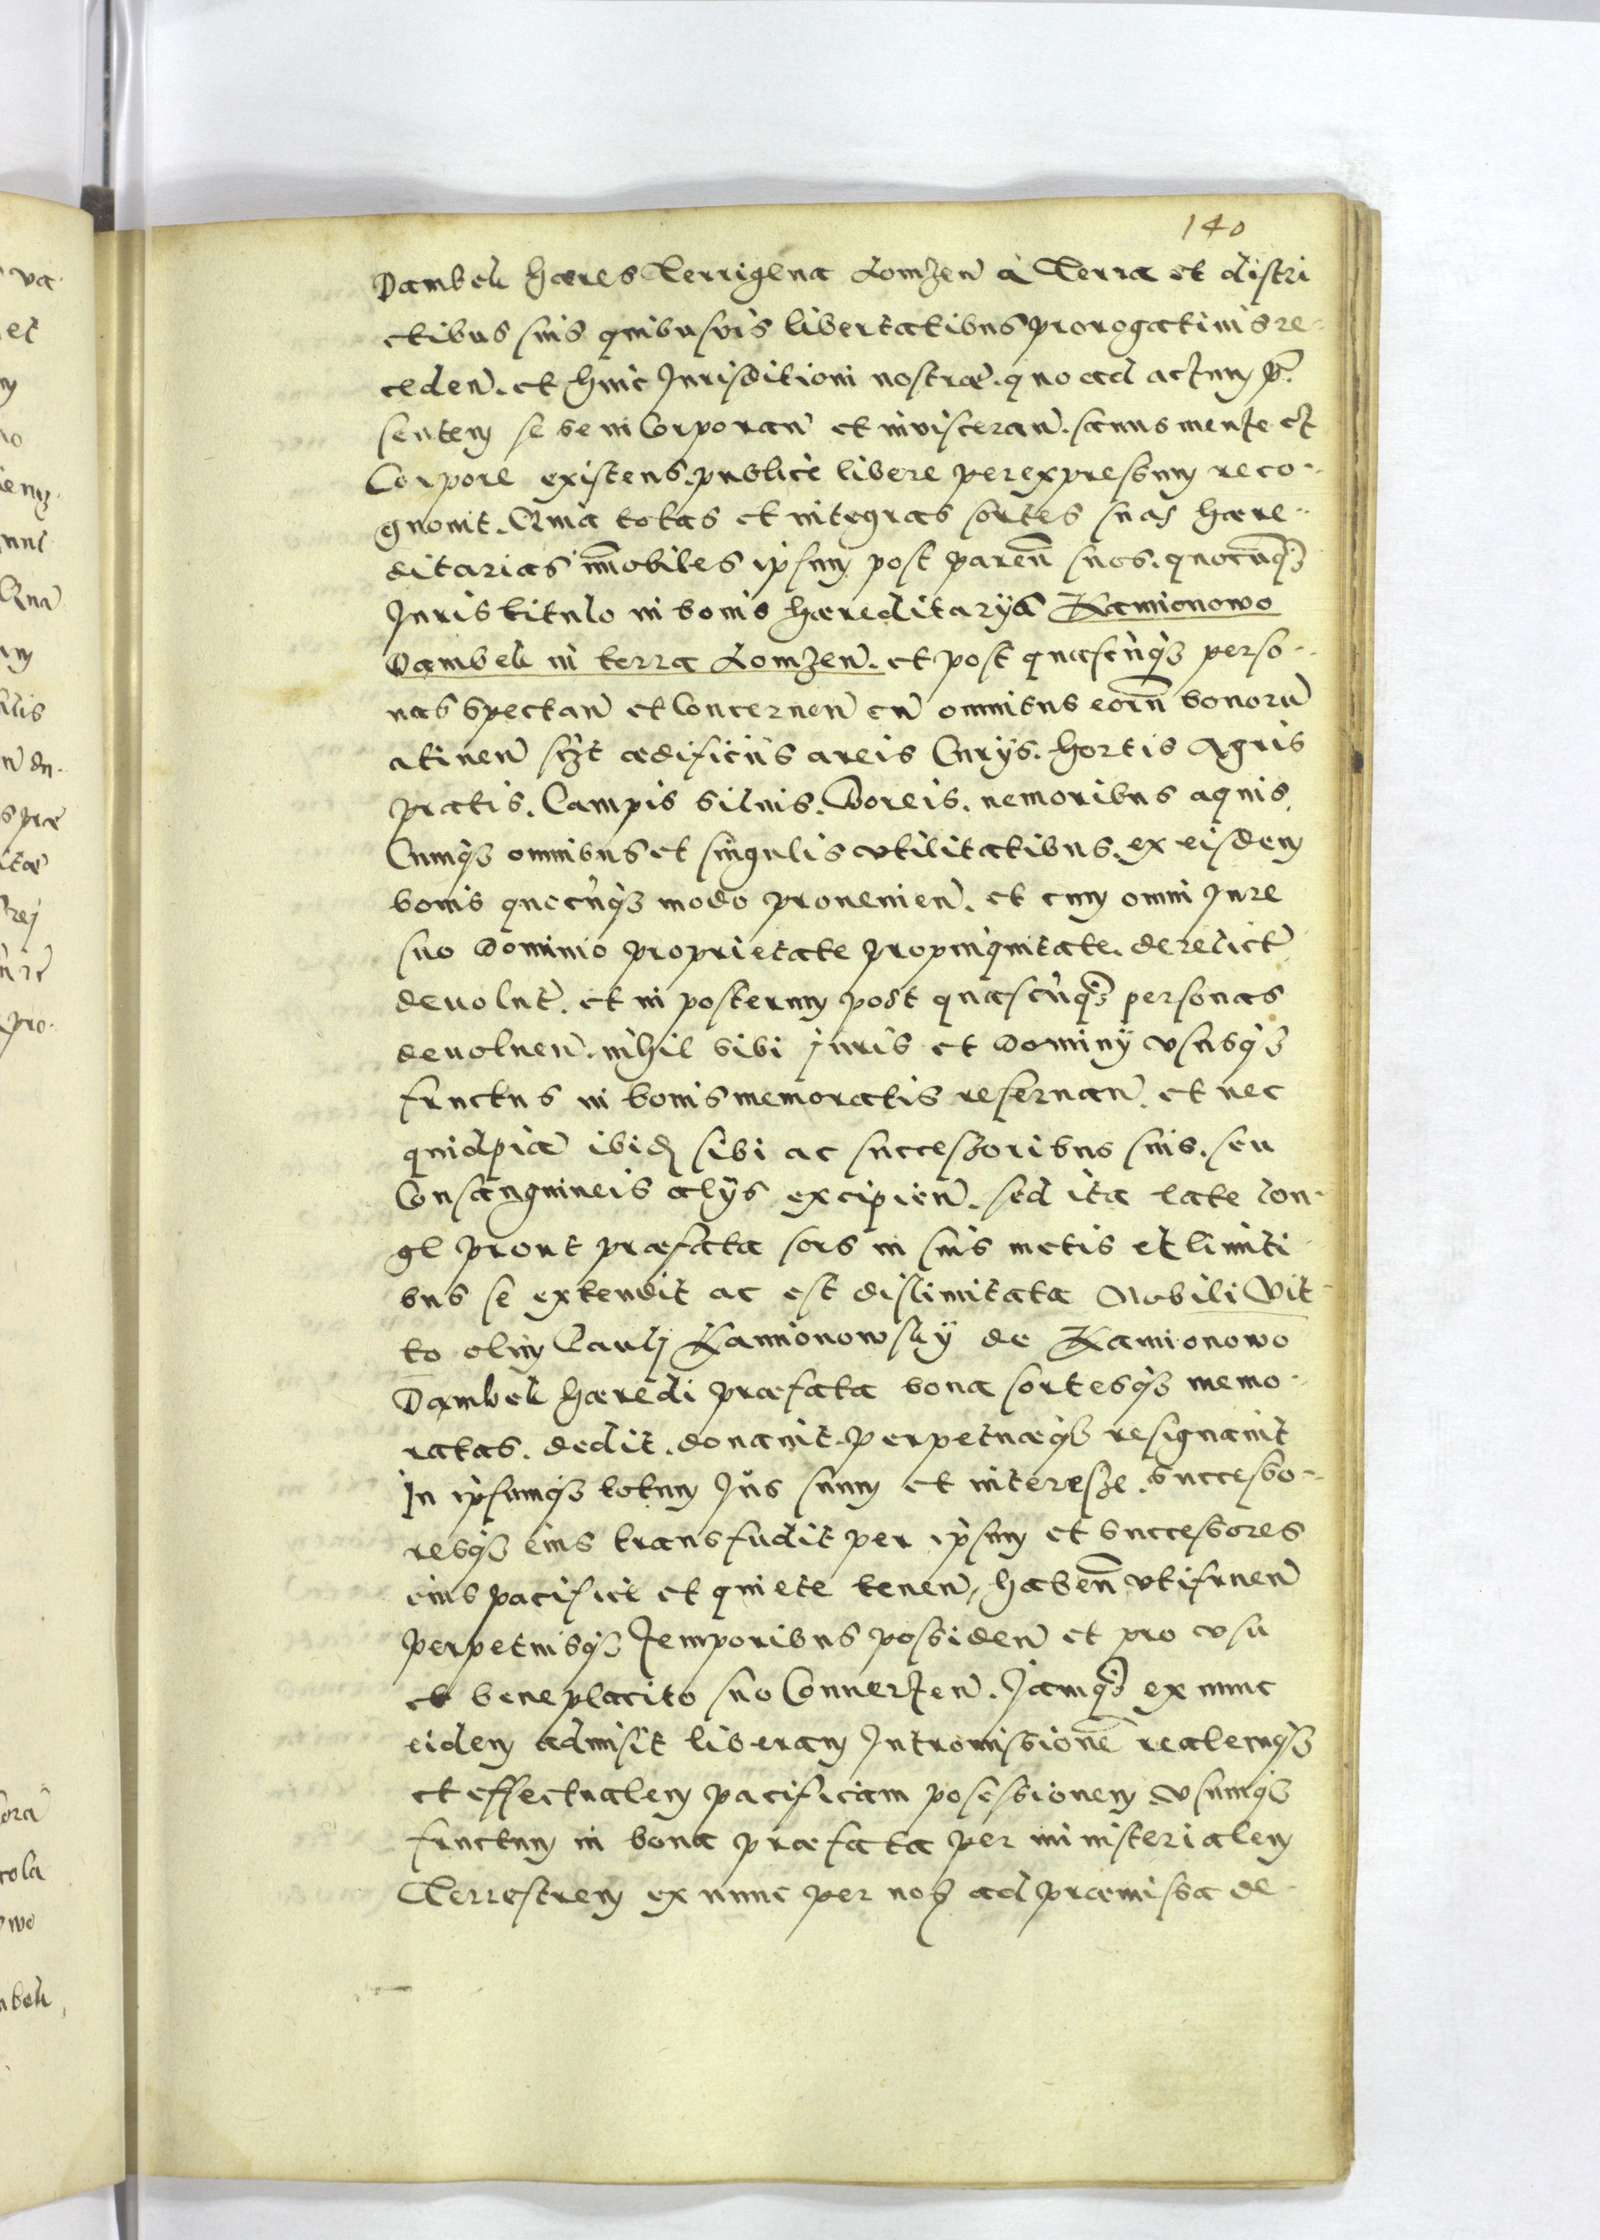 140
Dambek hæres Terrigena Lomzeñ à Terra et distri
ctibus suis quibusvis libertatibus prorogatiuis re-
cedeñ. et huic Jurisditioni nostræ. quo ad actum p̃
sentem se se inCorporañ et inuisceran̄. sanus mente et
Corpore existens. publicè libere per expressum reco-
gnouit. Quia totas et integras sortes suas hære-
ditarias im̄obiles ipsum post pareñ suos. quocunq3
Juris titulo in bonis hæreditarijs Kamionowo
Dambek in terra Lomzeñ. et post quascunq3 perso-
nas spectan̄ et Concerneñ cũ omnibus eorũ bonorũ
atineñ scz̃t ædificijs areis Curijs. hortis Agris
pratis. Campis siluis. Boreis. nemoribus aquis
Cumq3 omnibus et singulis vtilitatibus. ex eisdem
bonis quocunq3 modo prouenieñ. et cum omni Jure
suo Dominio proprietate propinquitate. derelict̃
deuolut̃. et in posterum post quascunq3 personas
deuolueñ. nihil sibi juris et Dominij vsusq3
fructus in bonis memoratis reseruañ. et nec
quidpiã ibid̃ sibi ac successoribus suis. seu
Consanguineis alijs excipieñ. sed ita late lon-
ge prout præfata sors in suis metis et limiti
bus se extendit ac est dislimitata Nobili Vit-
to olim Pauli Kamionowsky de Kamionowo
Dambek hæredi præfata bona sortesq3 memo-
ratas. dedit. donauit. perpetuæq3 resignauit
In ipsumq3 totum Jus suum et interesse. successo-
resq3 eius transfudit per ipsum et successores
eius pacificè et quiete teneñ, habeñ vtifrueñ
perpetuisq3 temporibus possideñ et pro vsu
et beneplacito suo Conuerteñ. Jamq3 ex nunc
eidem admisit liberam Intromissionẽ realemq3
et effectualem pacificam possessionem vsumq3
fructum in bona præfata per ministerialem
Terrestrem ex nunc per nos ad præmissa de-